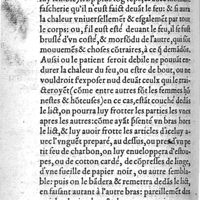 fascherie qu'il n'eust faict deuāt le feu: & si aura
la chaleur vniuersellemēt & esgalemēt par tout
le corps: ou, s'il eust esté deuant le feu, il seroit
bruslé d'vn costé, & morfōdu de l'autre, qui sōt
mouuemēs & choses cōtraires, à ce q̄ demādōs.
Aussi ou le patient seroit debile ne pouuant en-
durer la chaleur du feu, ou estre de bout, ou ne
vouldroit s'exposer nud deuāt ceulx qui le trai-
cteroyēt (cōme entre autres sont les fēmes hō-
nestes & hōteuses) en ce cas, estāt couché dedās
le lict, on pourra luy frotter les parties les vnes
apres les autres: cōme ayāt prins vn bras hors
le lict, & luy auoir frotté les articles d'iceluy a-
uec l'vnguēt preparé, au dessus, ou
feu de charbon, on luy enueloppera d'estou-
pes, ou de cotton cardé, de cōpresses de linge,
d'vne fueille de papier noir, ou autre sembla-
ble: puis on le bādera & remettra dedās le lict,
en faisant autant à l'autre bras: pareillement des